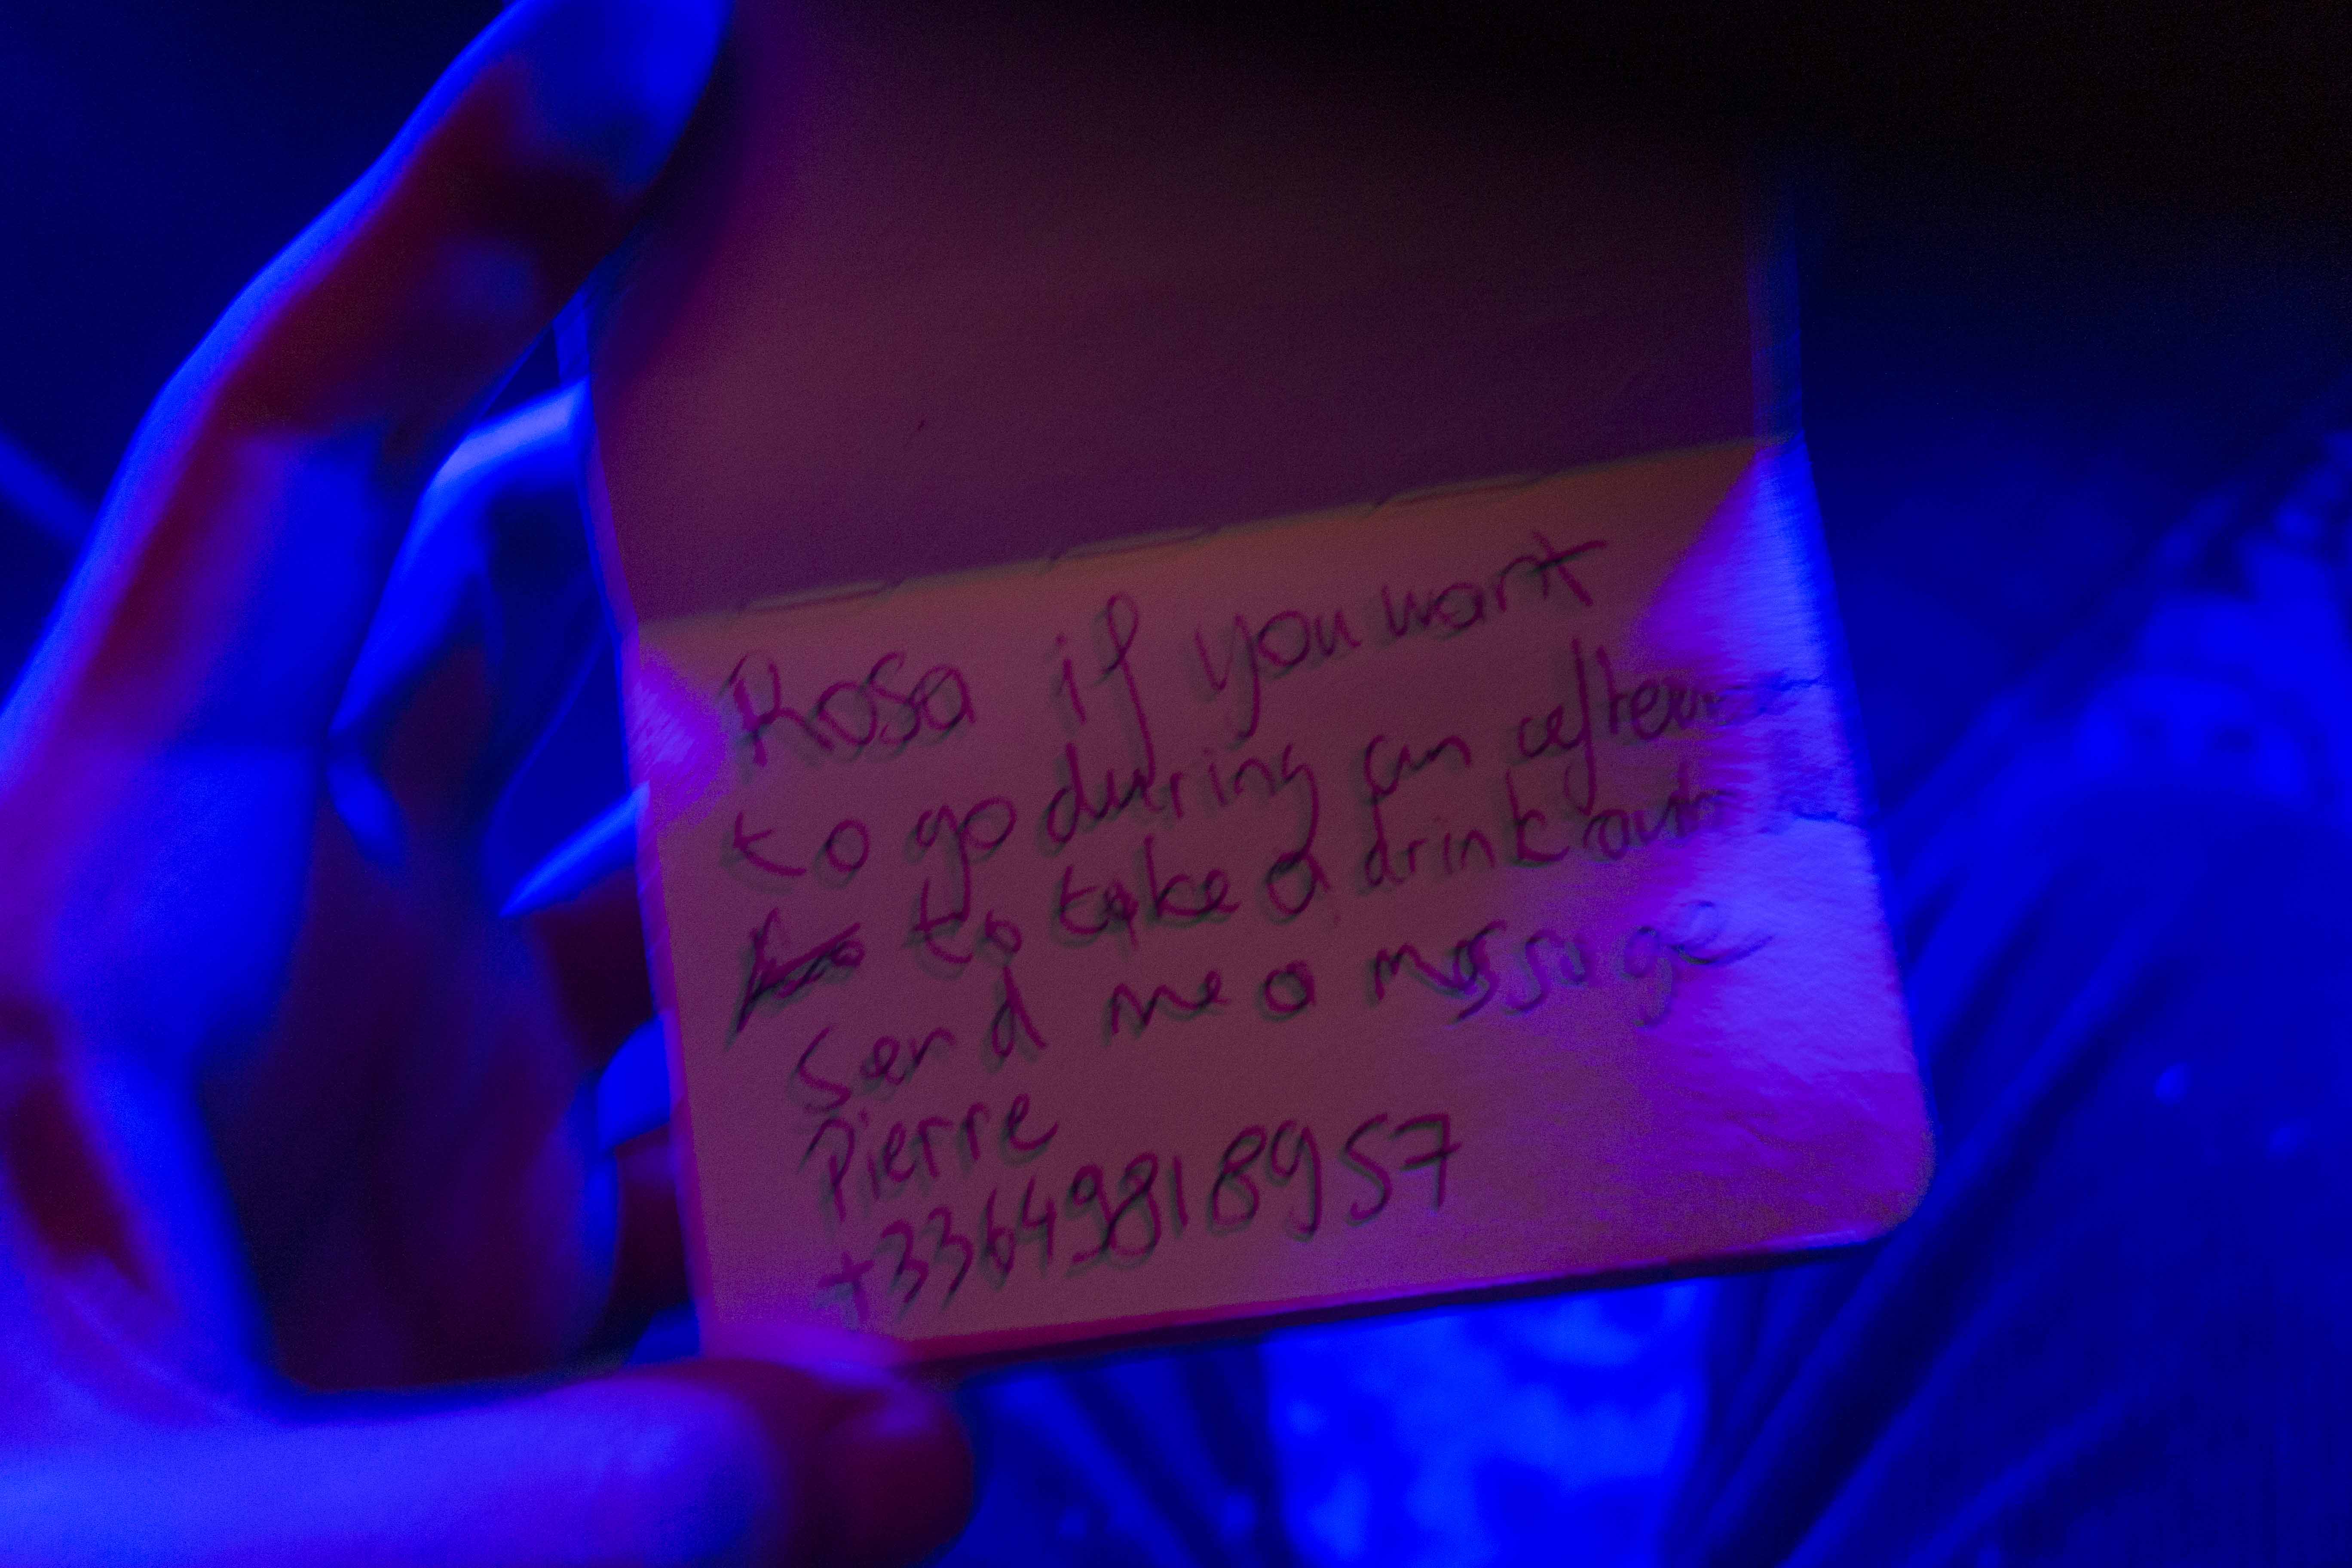 Rosa if you want
to go during an
to take a drink out
Send me a message
Pierre
+33649818957